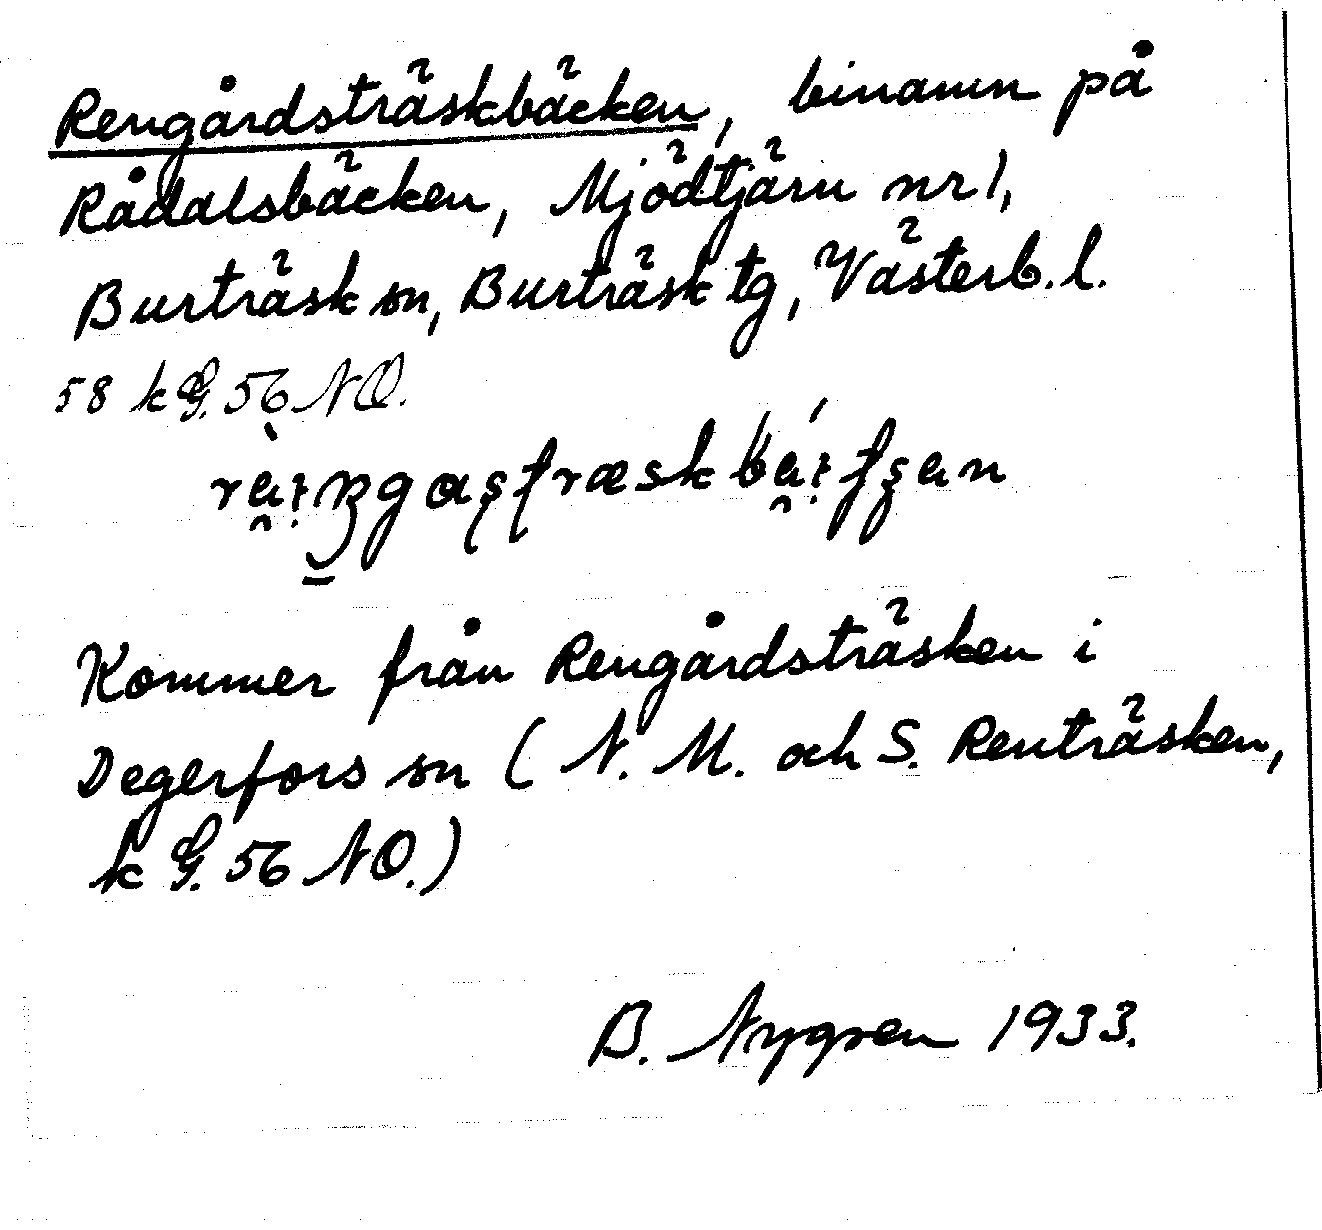 Rengårdsträskbäcken, binamn på
Rådalsbäcken, Mjödtjärn nr 1,
Burträsk sn, Burträsk tg, Västerb. l.
58 k G. 56 NO.
Kommer från Rengårdsträsken i
Degerfors sn (N. M. och S. Renträsken,
k G. 56 NO.)
B. Nygren 1933.